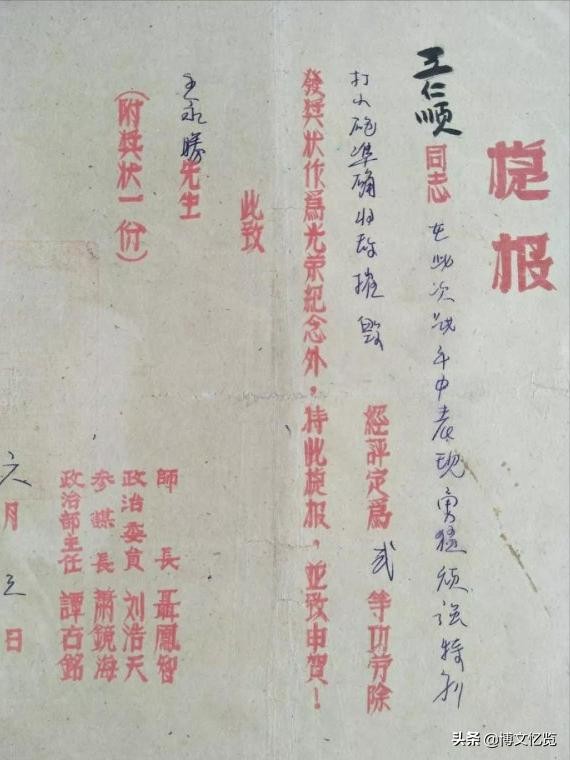 旋报
王仁顺同志在此次战斗中表现勇猛顽强特别
打小砲準确将敌摧毁 經評定爲弍等功劳除
發奖状作爲光荣紀念外，特此旋报，並致申賀！
此致
王永勝先生
（附奖状一份）
師長 聶鳳智
政治委員 刘浩天
参謀長 蕭鏡海
政治部主任 譚右銘
六月 日
头条 @博文忆览